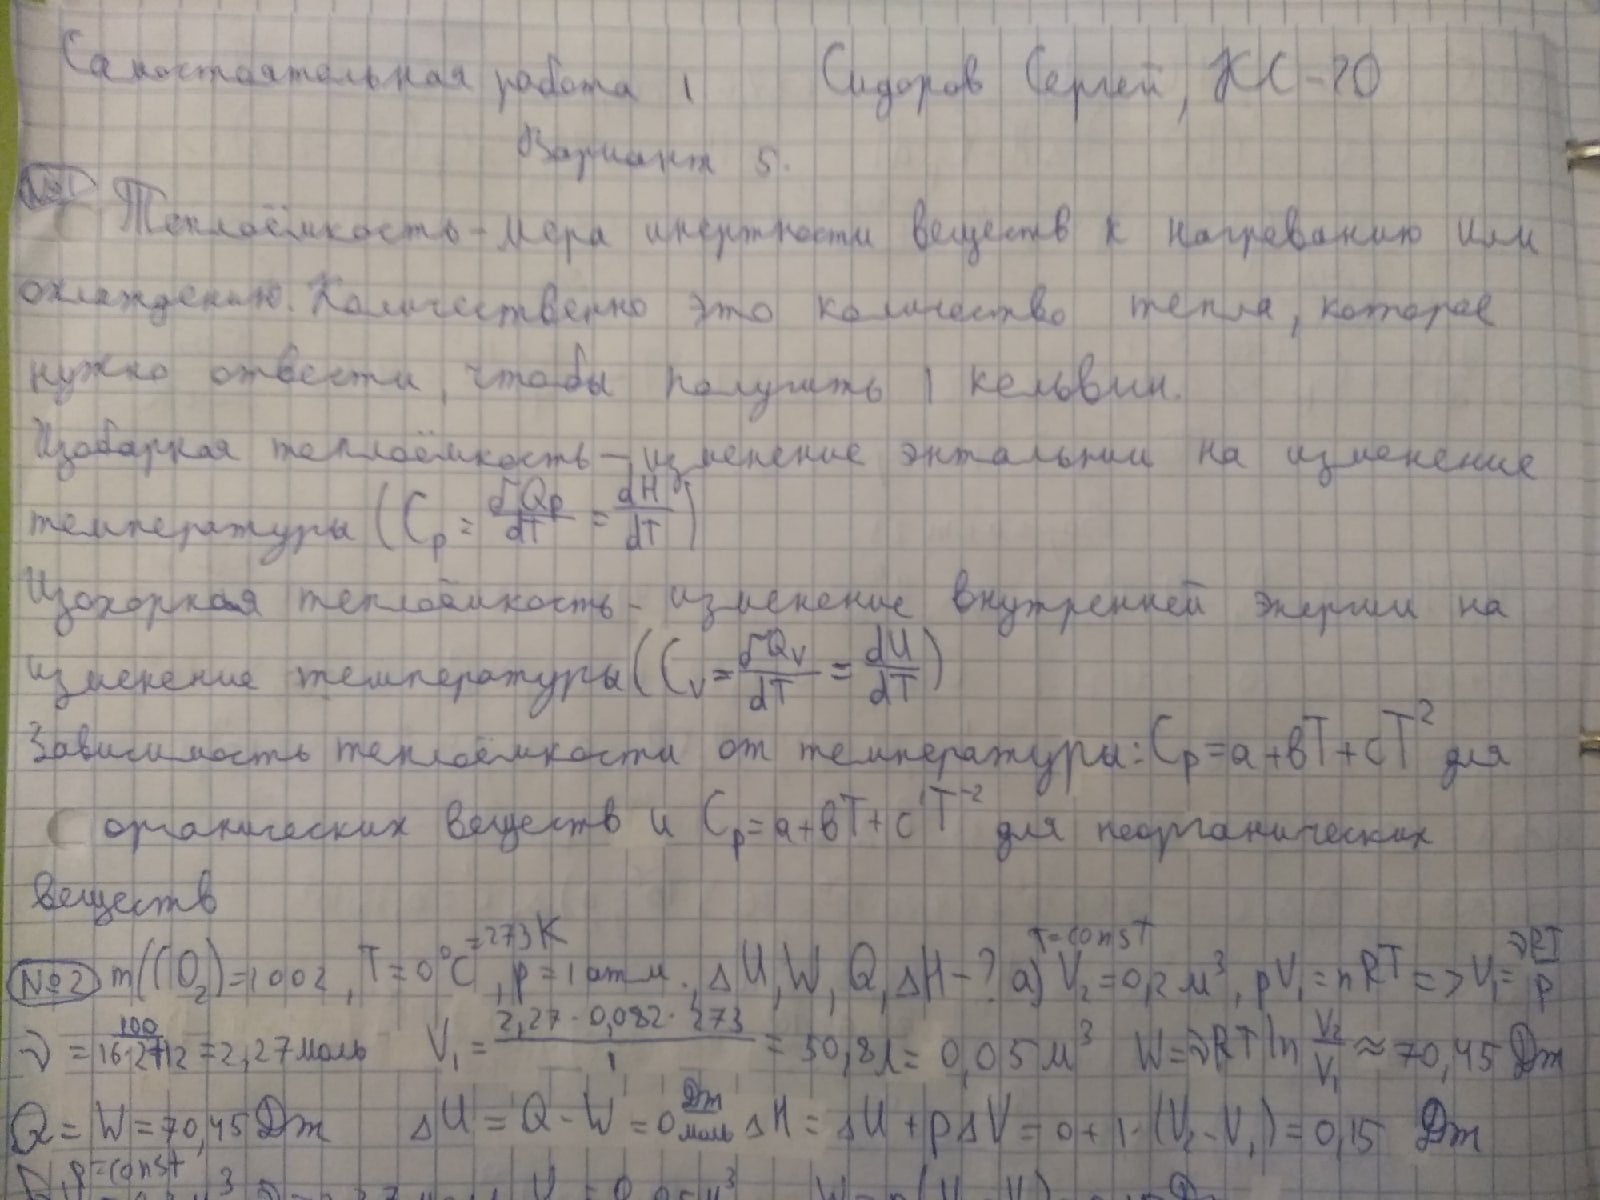 Самостоятельная работа 1 Сидоров Сергей, КС-20
Вариант 5.
№1 Теплоёмкость - мера инертности веществ к нагреванию или
охлаждению. Количественно это количество тепла, которое
нужно отвести, чтобы получить 1 кельвин.
Изобарная теплоёмкость - изменение энтальпии на изменение
температуры (Cp = δQp/dT = dH/dT)
Изохорная теплоёмкость - изменение внутренней энергии на
изменение температуры (Cv = δQv/dT = dU/dT)
Зависимость теплоёмкости от температуры: Cp = a + bT + cT² для
органических веществ и Cp = a + bT + c'T⁻² для неорганических
веществ
№2 m(CO₂) = 100г, T = 0°C = 273K, p = 1 атм., ΔU, W, Q, ΔH - ? а) T = const V₂ = 0,2 м³, pV₁ = nRT => V₁ = νRT/p
ν = 100/16·2+12 = 2,27 моль V₁ = 2,27·0,082·273/1 = 50,8л = 0,05 м³ W = νRT ln V₂/V₁ ≈ 70,45 Дж
Q = W = 70,45 Дж ΔU = Q - W = 0 Дж/моль ΔH = ΔU + pΔV = 0 + 1·(V₂ - V₁) = 0,15 Дж
p = const